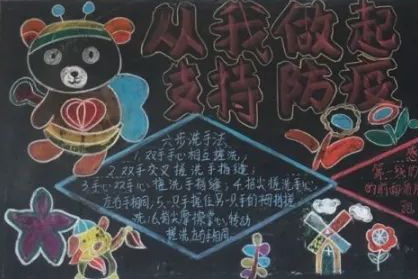 从我做起
支持防疫
六步洗手法
1.双手手心相互搓洗,
2.双手交叉搓洗手指缝;
3.手心双手心搓洗手指缝;4.指尖搓洗手心,
左右手相同;5.一只手握住另一只手的拇指搓
洗,6.指尖摩擦掌心,转动
搓洗左右手相同
第一线的
的前面